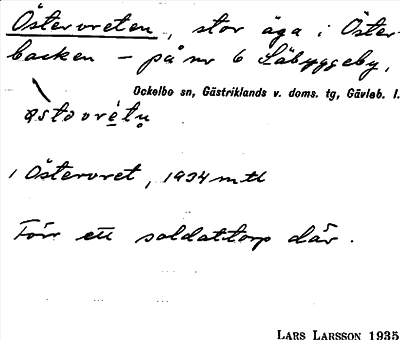 Östervreten, stor äga i Öster-
backen – på nr 6 Säbyggeby,
Ockelbo sn, Gästriklands v. doms. tg, Gävleb. l.
1 Östervret, 1934 mtl
Förr ett soldattorp där.
LARS LARSSON 1935